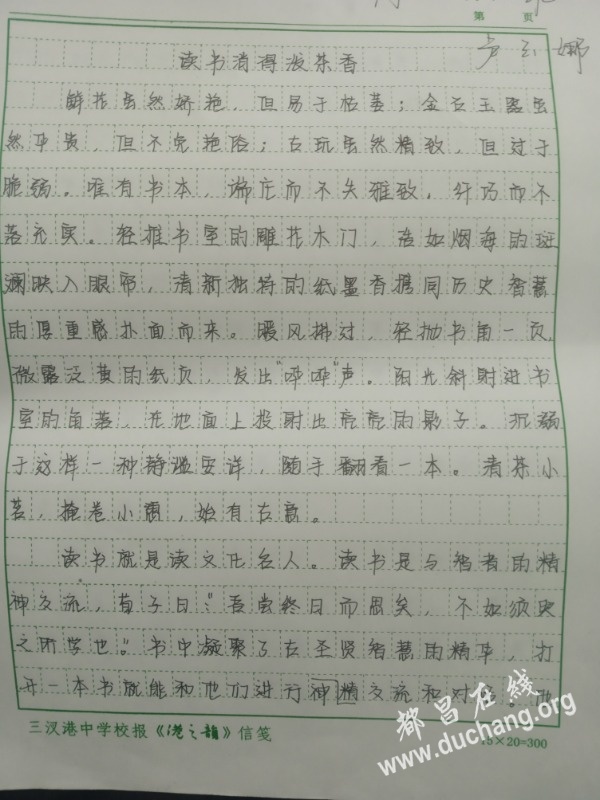 第 页
读书消得泼茶香
鲜花虽然娇艳，但易于枯萎；金石玉器虽
然华贵，但不免艳俗；古玩虽然精致，但过于
脆弱。唯有书本，端庄而不失雅致，纤巧而不
落充实。轻推书室的雕花木门，浩如烟海的斑
斓映入眼帘，清新独特的纸墨香携同历史智慧
的厚重感扑面而来。暖风拂过，轻抛书角一页，
微露泛黄的纸页，发出“哗哗”声。阳光斜射进书
室的角落，在地面上投射出亮亮的影子。沉溺
于这样一种静谧安详，随手翻看一本。清茶小
茗，掩卷小憩，始有古意。
读书就是读文化名人。读书是与智者的精
神交流，荀子曰：“吾尝终日而思矣，不如须臾
之所学也。”书中凝聚了古圣贤智慧的精华，打
开一本书就能和他们进行神精交流和对
三汊港中学校报《港之韵》信笺
15×20=300
都昌在线
www.duchang.org